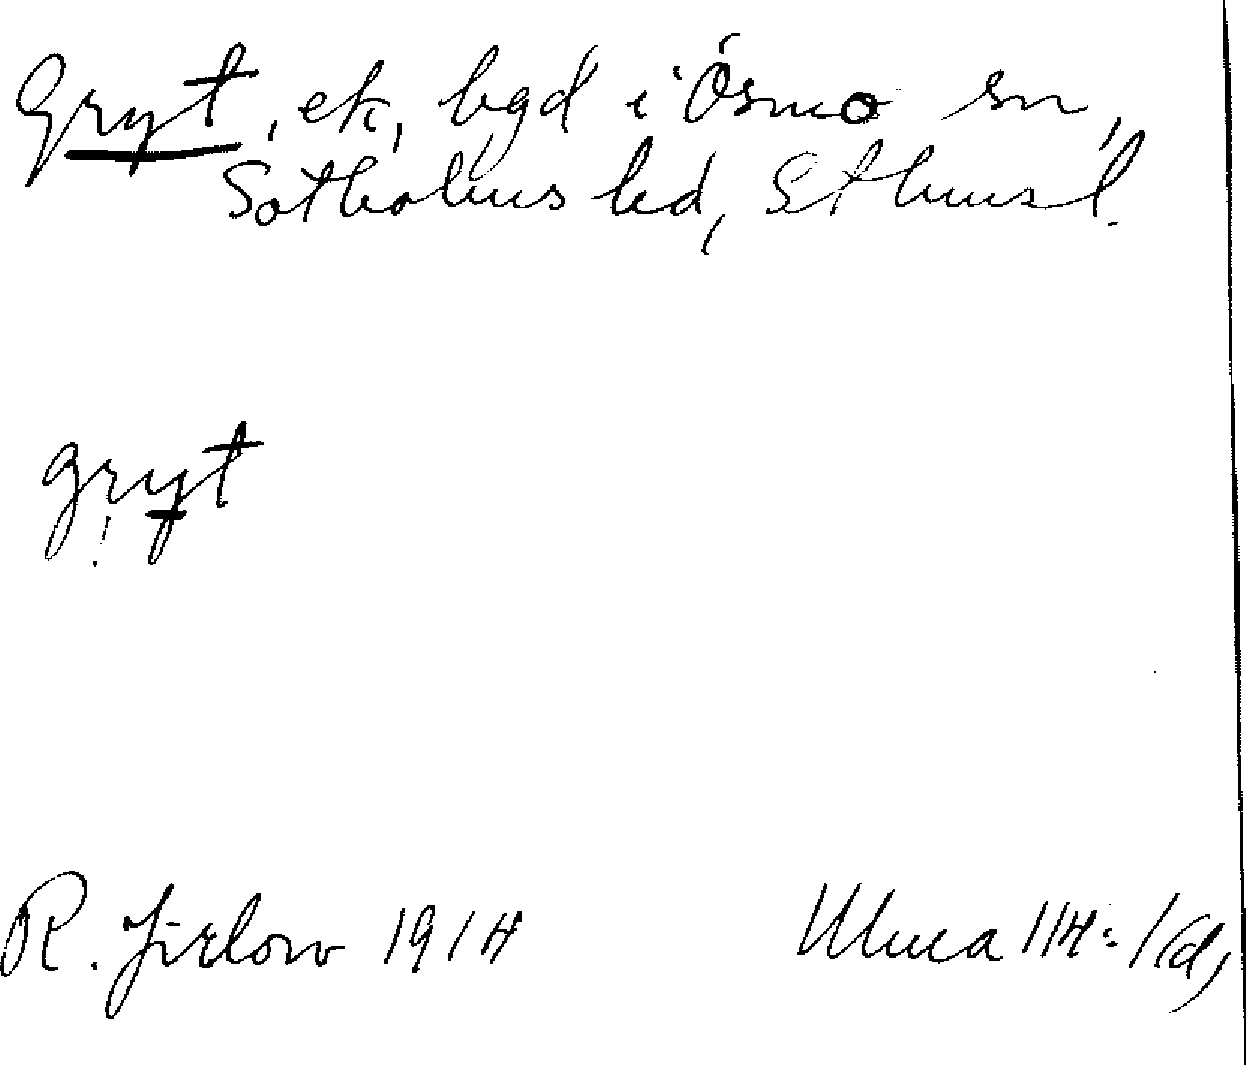 Gryt, ek, bgd i Ösmo sn,
Sotholms hd, Sthms l.
gryt
R. Jirlow 1914
Ulma 114: